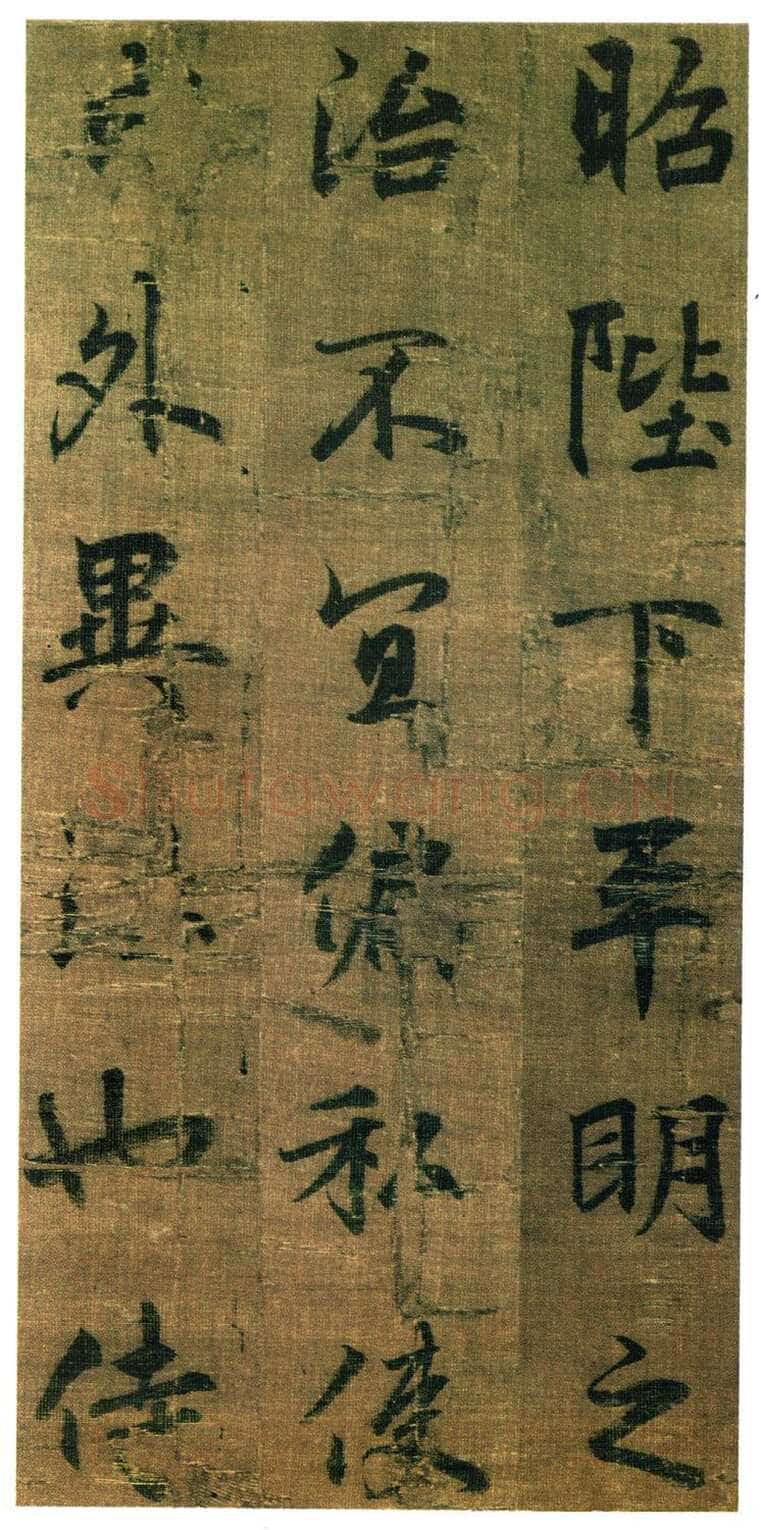 昭陛下平明之
治不宜偏私使
外異也侍
Shufawang.CN